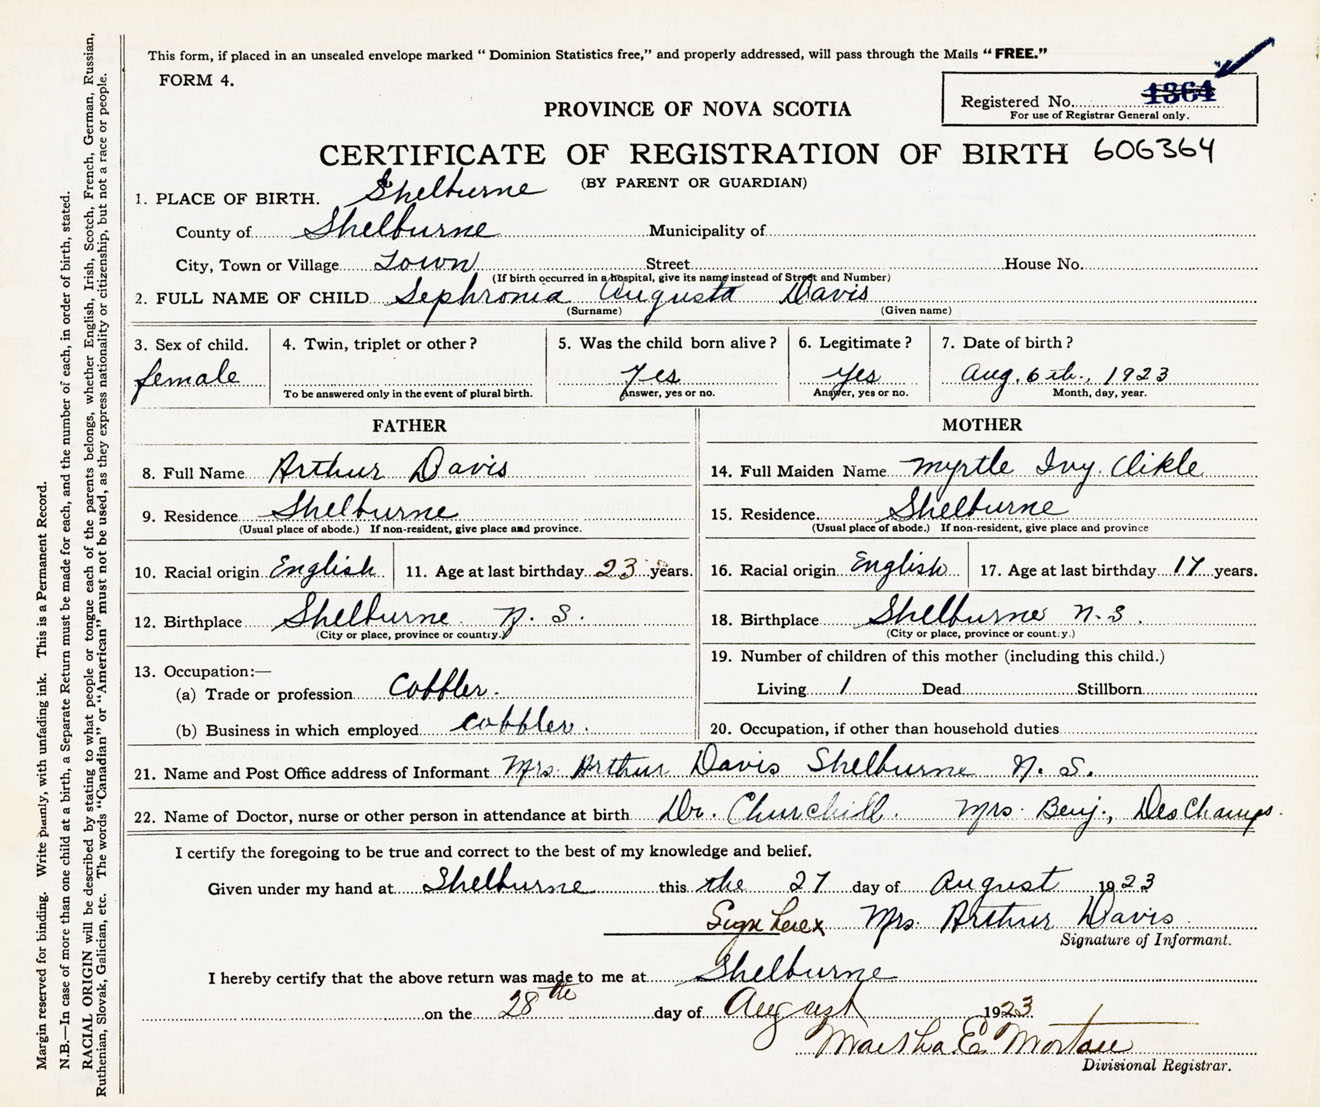 This form, if placed in an unsealed envelope marked "Dominion Statistics free," and properly addressed, will pass through the Mails "FREE."
FORM 4.
Registered No. 1364
For use of Registrar General only.
PROVINCE OF NOVA SCOTIA
CERTIFICATE OF REGISTRATION OF BIRTH 606364
(BY PARENT OR GUARDIAN)
1. PLACE OF BIRTH. Shelburne
County of Shelburne Municipality of
City, Town or Village Town Street House No.
(If birth occurred in a hospital, give its name instead of Street and Number)
2. FULL NAME OF CHILD Sephronia Augusta Davis
(Surname) (Given name)
3. Sex of child. female
4. Twin, triplet or other?
To be answered only in the event of plural birth.
5. Was the child born alive? Yes
Answer, yes or no.
6. Legitimate? Yes
Answer, yes or no.
7. Date of birth? Aug. 6th., 1923
Month, day, year.
FATHER
8. Full Name Arthur Davis
9. Residence Shelburne
(Usual place of abode.) If non-resident, give place and province.
10. Racial origin English 11. Age at last birthday 23 years.
12. Birthplace Shelburne N. S.
(City or place, province or country.)
13. Occupation:—
(a) Trade or profession Cobbler.
(b) Business in which employed cobbler.
MOTHER
14. Full Maiden Name Myrtle Ivy
15. Residence. Shelburne
(Usual place of abode.) If non-resident, give place and province
16. Racial origin English 17. Age at last birthday 17 years.
18. Birthplace Shelburne N.S.
(City or place, province or country.)
19. Number of children of this mother (including this child.)
Living 1 Dead Stillborn
20. Occupation, if other than household duties
21. Name and Post Office address of Informant Mrs. Arthur Davis Shelburne N. S.
22. Name of Doctor, nurse or other person in attendance at birth Dr. Churchill. Mrs. Benj., DesChamps.
I certify the foregoing to be true and correct to the best of my knowledge and belief.
Given under my hand at Shelburne this the 27 day of August 1923
Sign here x Mrs. Arthur Davis
Signature of Informant.
I hereby certify that the above return was made to me at Shelburne
on the 28th day of August 1923
Martha E. Morton
Divisional Registrar.
Margin reserved for binding. Write plainly, with unfading ink. This is a Permanent Record.
N.B.—In case of more than one child at a birth, a Separate Return must be made for each, and the number of each, in order of birth, stated.
RACIAL ORIGIN will be described by stating to what people or tongue each of the parents belongs, whether English, Irish, Scotch, French, German, Russian,
Ruthenian, Slovak, Galician, etc. The words "Canadian" or "American" must not be used, as they express nationality or citizenship, but not a race or people.